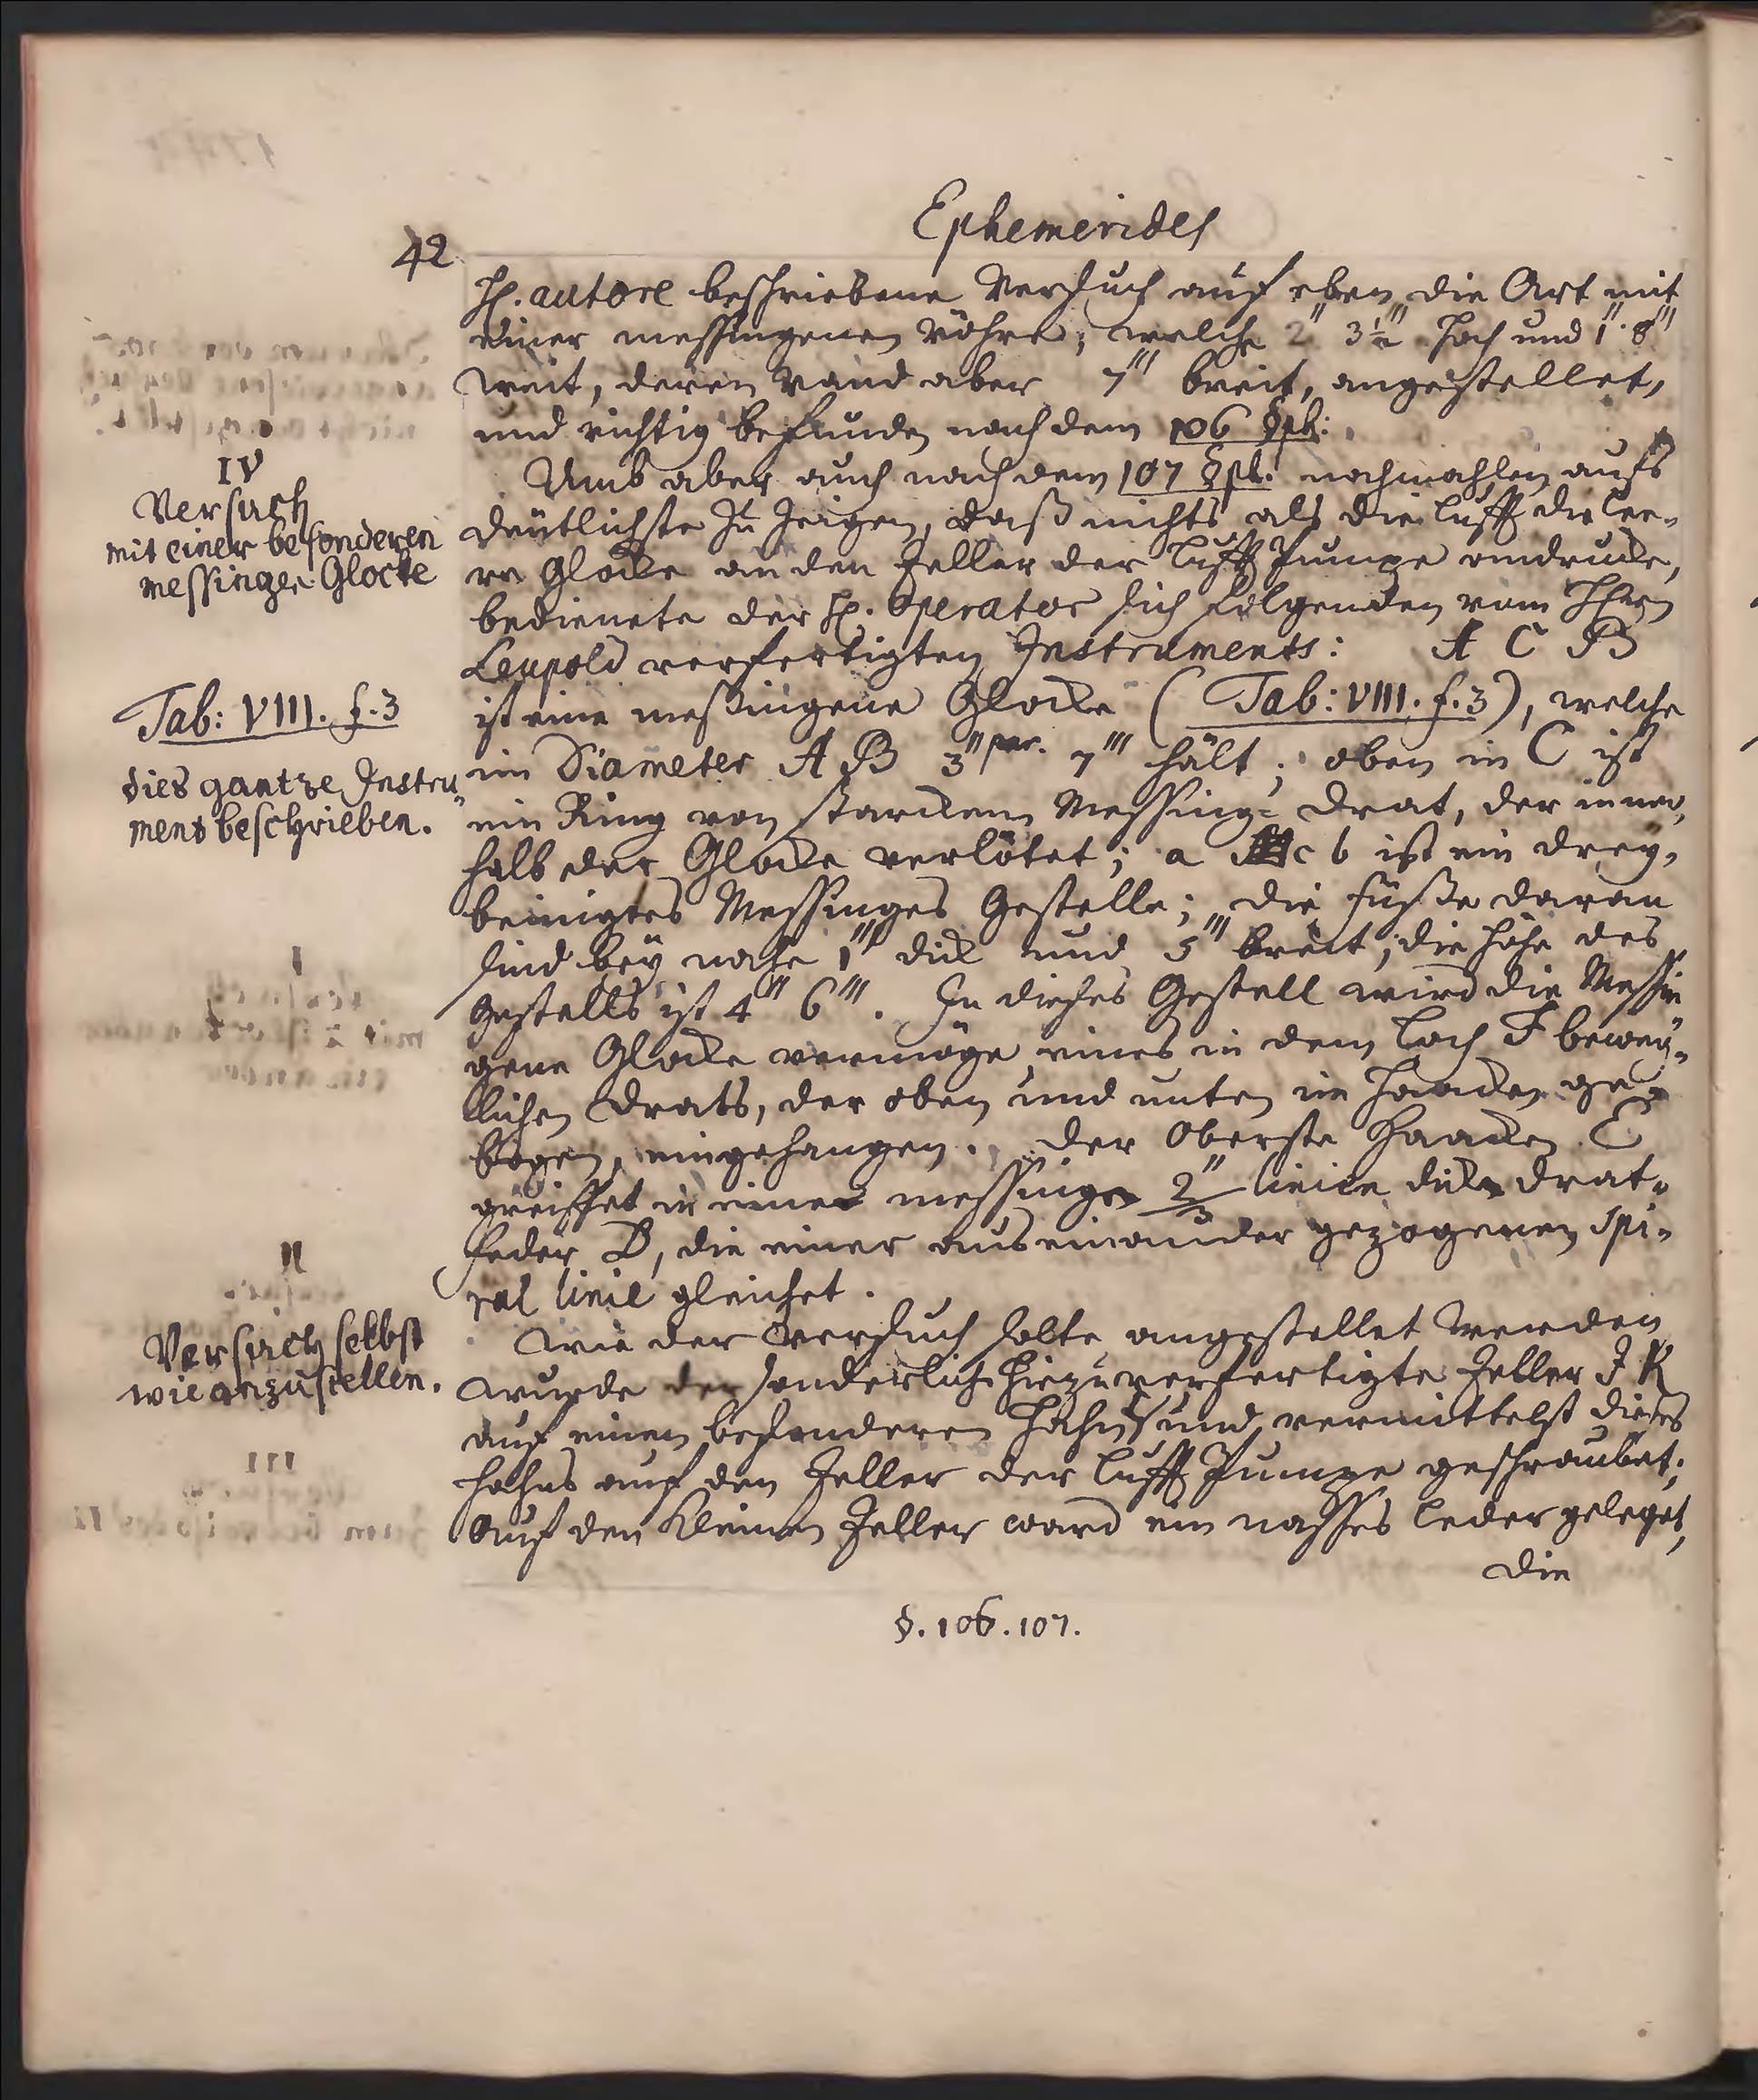 Ephemerides
42
H. autore beschriebene Versuch auf eben die Art mit
einer messingenen Röhre, welche 2'' 3½''' hoch und 1''. 8'''
weit, deren Rand aber 7''' breit, angestellet,
und richtig befunden nach dem 106 §ph.
Umb aber auch nach dem 107 §ph. nochmahlen aufs
deutlichste zu zeigen, daß nichts als die Lufft die lee-
re Glocke an den Teller der Lufft Pumpe andrucke,
bedienete der H. Operator sich folgenden vom Herrn
Leupold verfertigten Instruments: A C B
ist eine meßingene Glocke (Tab: VIII. f. 3), welche
im Diameter A B 3'' par. 7''' hält; oben in C ist
ein Ring von starckem Messing-Drat, der inner,
halb der Glocke verlötet; a c b ist ein drey,
beinigtes Messinges Gestelle; die füße daran
sind bey nahe 1''' dick und 5''' breit; die höhe des
Gestells ist 4'' 6'''. In dieses Gestell wird die Messin
gene Glocke vermöge eines in dem Loch F beweg-
lichen Drats, der oben und unten im Haacken ge-
bogen, eingehangen. Der Oberste Haacken E
greiffet in einer messingen 2/3 linien dicken Drat-
feder D, die einer auseinander gezogenen Spi-
ral linie gleichet.
Wie der Versuch solte angestellet werden
wurde der sonderlich hiezu verfertigte Teller I K
auf einen besonderen Hahn und vermittelst dieses
Hahns auf den Teller der Lufft Pumpe geschraubet;
Auf den kleinen Teller ward ein nasses Leder geleget,
die
§. 106. 107.
IV
Versuch
mit einer besonderen
messingen Glocke
Tab: VIII. f. 3
dies gantze Instru
ment beschrieben.
Versuch selbst
wie anzustellen.